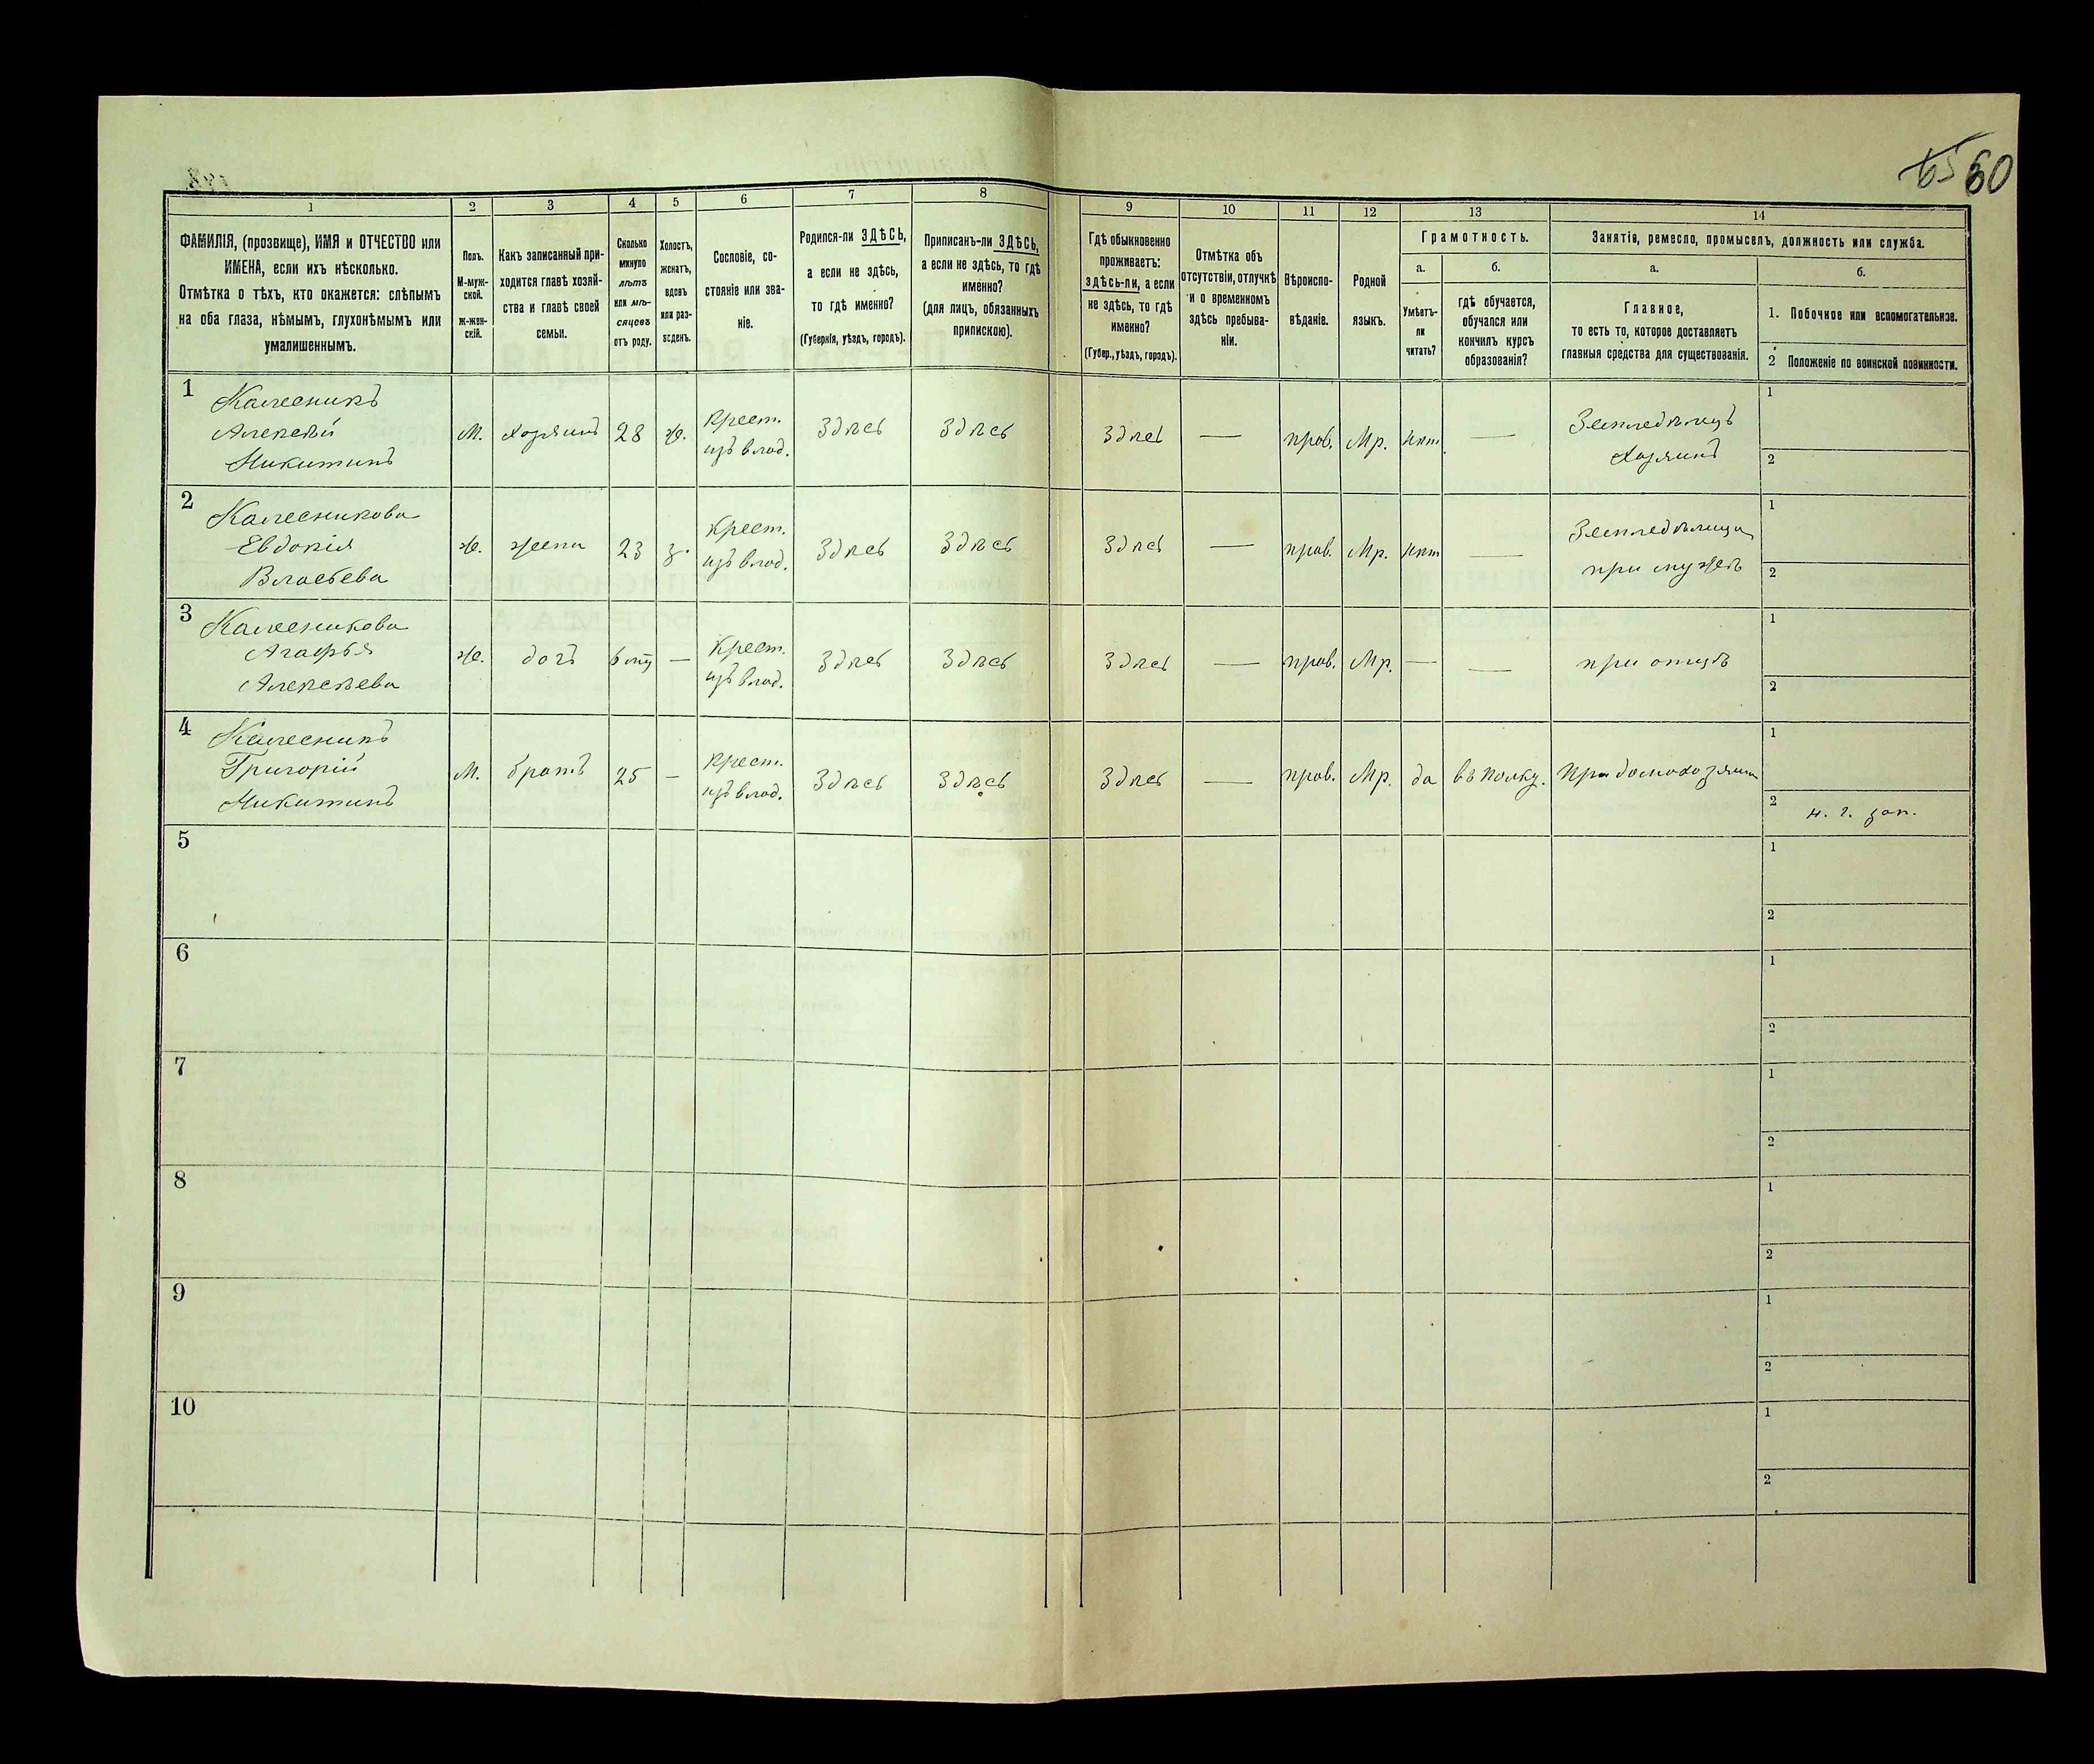 65 60
1 2 3 4 5 6 7 8 9 10 11 12 13 14
ФАМИЛІЯ, (прозвище), ИМЯ и ОТЧЕСТВО или
ИМЕНА, если ихъ нѣсколько.
Отмѣтка о тѣхъ, кто окажется: слѣпымъ
на оба глаза, нѣмымъ, глухонѣмымъ или
умалишеннымъ.
Полъ.
М-муж-
ской.
ж-жен-
скій.
Какъ записанный при-
ходится главѣ хозяй-
ства и главѣ своей
семьи.
Сколько
минуло
лѣтъ
или мѣ-
сяцевъ
отъ роду.
Холостъ,
женатъ,
вдовъ
или раз-
веденъ.
Сословіе, со-
стояніе или зва-
ніе.
Родился-ли ЗДѢСЬ,
а если не здѣсь,
то гдѣ именно?
(Губернія, уѣздъ, городъ).
Приписанъ-ли ЗДѢСЬ,
а если не здѣсь, то гдѣ
именно?
(для лицъ, обязанныхъ
припискою).
Гдѣ обыкновенно
проживаетъ:
здѣсь-ли, а если
не здѣсь, то гдѣ
именно?
(Губер., уѣздъ, городъ).
Отмѣтка объ
отсутствіи, отлучкѣ
и о временномъ
здѣсь пребыва-
ніи.
Вѣроиспо-
вѣданіе.
Родной
языкъ.
Грамотность.
а.
Умѣетъ-
ли
читать?
б.
гдѣ обучается,
обучался или
кончилъ курсъ
образованія?
Занятіе, ремесло, промыселъ, должность или служба.
а.
Главное,
то есть то, которое доставляетъ
главныя средства для существованія.
б.
1. Побочное или вспомогательное.
2 Положеніе по воинской повинности.
1 Калесникъ
Алексѣй
Никитинъ
М. хозяинъ 28 ж. Крест.
изъ влад.
Здѣсь Здѣсь Здѣсь — прав. Мр. нѣт —
Земледѣлецъ
Хозяинъ
1
2
2 Калесникова
Евдокія
Власьева
ж. жена 23 з. Крест.
изъ влад.
Здѣсь Здѣсь Здѣсь — прав. Мр. нѣт —
Земледѣлица
при мужѣ
1
2
3 Калесникова
Агафья
Алексѣева
ж. дочь — Крест.
изъ влад.
Здѣсь Здѣсь Здѣсь — прав. Мр. — —
при отцѣ
1
2
4 Калесникъ
Григорій
Никитинъ
М. братъ 25 — Крест.
изъ влад.
Здѣсь Здѣсь Здѣсь — прав. Мр. да въ полку.
при домохозяин
1
2 н. г. зап.
5
1
2
6
1
2
7
1
2
8
1
2
9
1
2
10
1
2